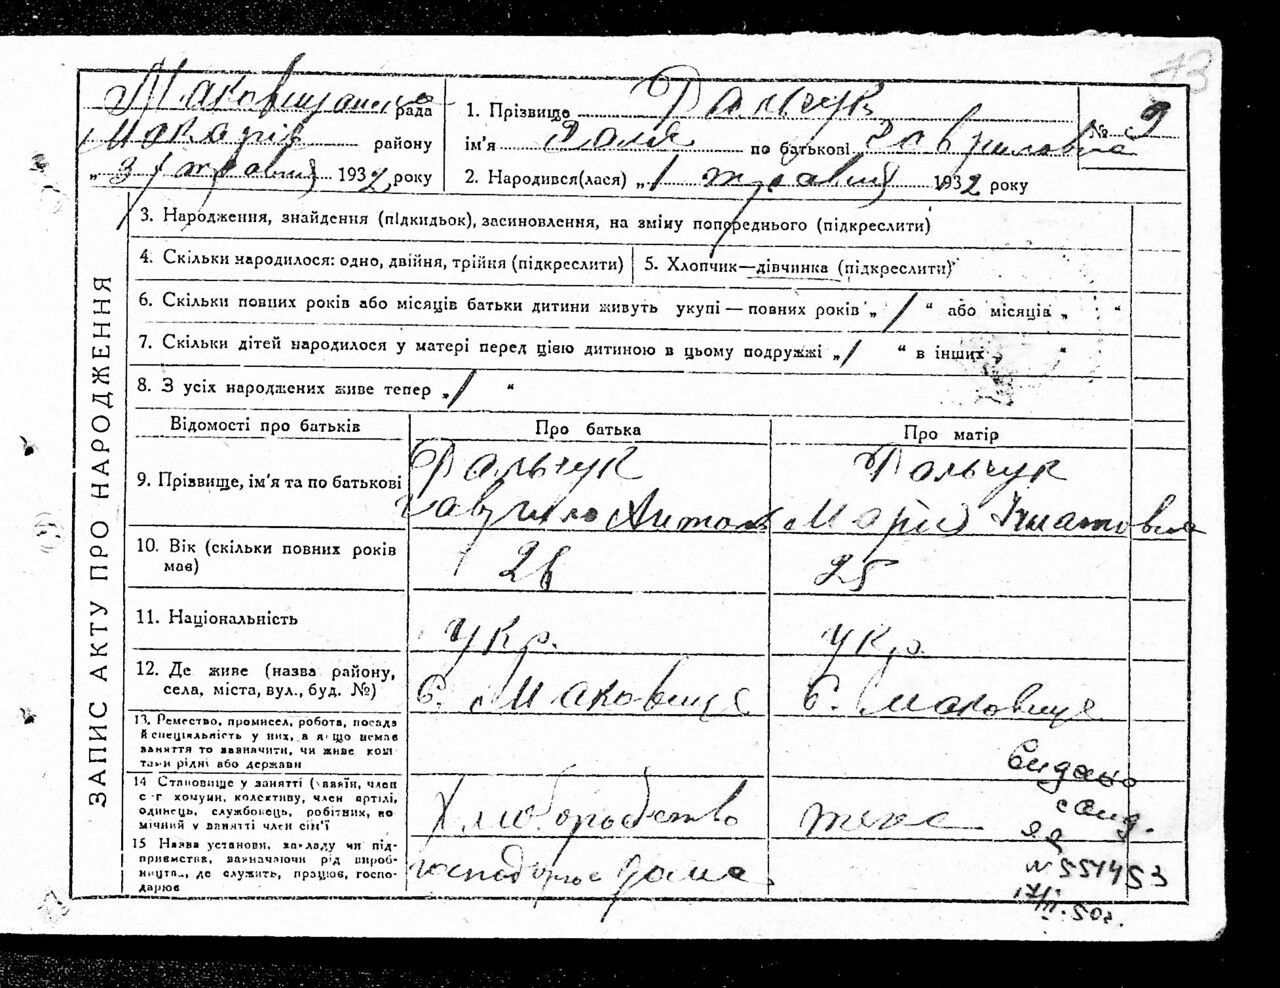 13
Маковищанська рада
Макарів району
„ 3 / травня 1932 року
1. Прізвище Фальчук
№ 9
ім'я Галя по батькові Гавриловна
2. Народився(лася) „ 1 травня 1932 року
ЗАПИС АКТУ ПРО НАРОДЖЕННЯ
3. Народження, знайдення (підкидьок), засиновлення, на зміну попереднього (підкреслити)
4. Скільки народилося: одно, двійня, трійня (підкреслити)
5. Хлопчик—дівчинка (підкреслити)
6. Скільки повних років або місяців батьки дитини живуть укупі — повних років „ 1 “ або місяців „ “
7. Скільки дітей народилося у матері перед цією дитиною в цьому подружжі „ 1 “ в інших „ “
8. З усіх народжених живе тепер „ 1 “
Відомості про батьків
Про батька
Про матір
9. Прізвище, ім'я та по батькові
Фальчук
Гаврило Антонов
Фальчук
Марія Игнатовна
10. Вік (скільки повних років
має)
26
25
11. Національність
Укр.
Укр.
12. Де живе (назва району,
села, міста, вул., буд. №)
с. Маковище
с. Маковище
13. Ремество, промисел, робота, посада
й спеціяльність у них, а якщо немає
заняття то зазначити, чи живе коштами рідні або держави
14 Становище у занятті (хазяїн, член
с-г комуни, колективу, член артілі,
одинець, службовець, робітник, помічний у занятті член сім'ї
Хлиборобство
жена
15 Назва установи, закладу чи підприємства, зазначаючи рід виробництва, де служить, працює, господарює
господарює дома
Видано
свид.
№ 551453
17/II-50г.